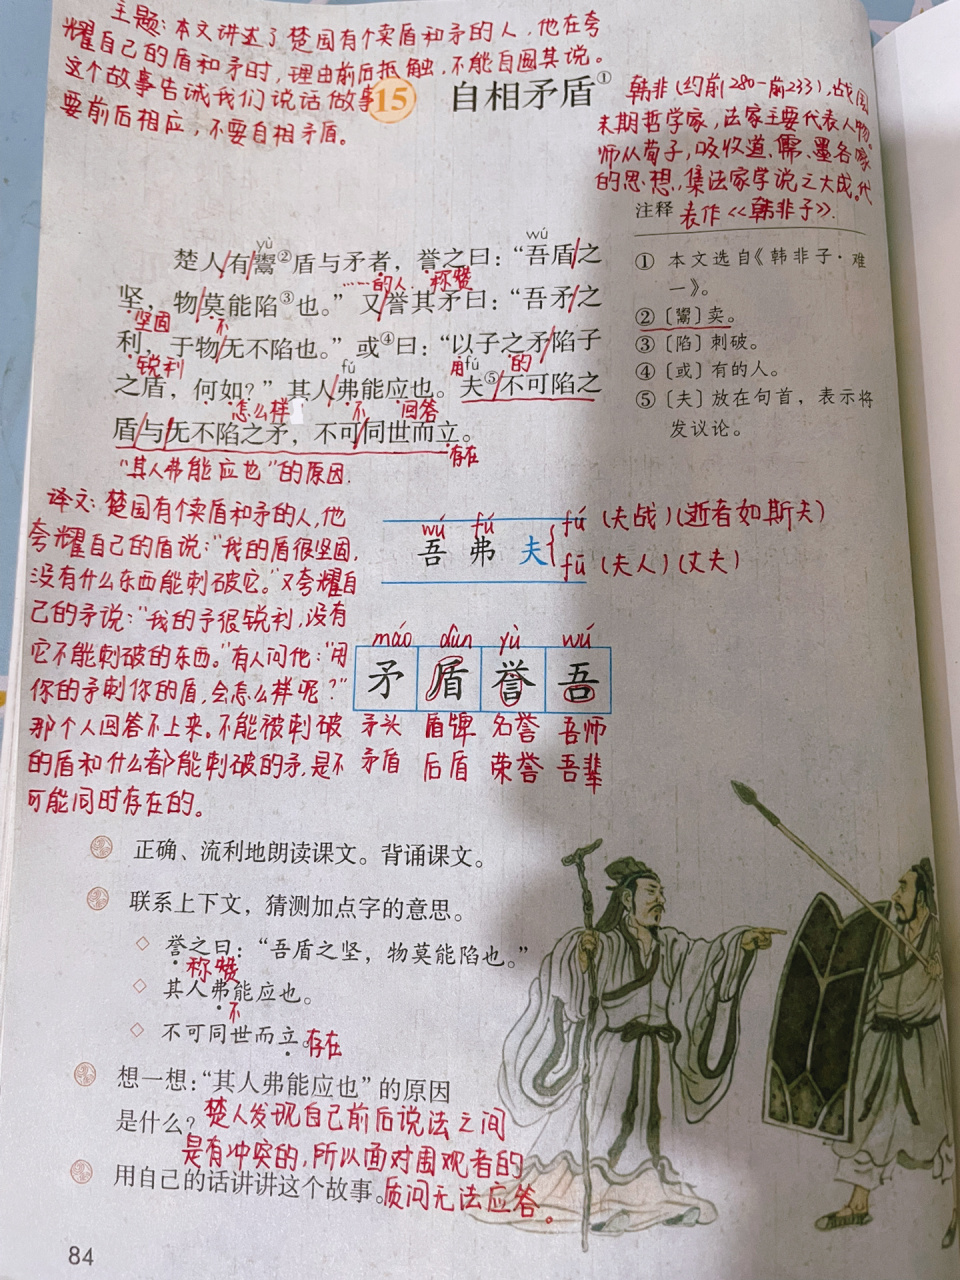 主题:本文讲述了楚国有个卖盾和矛的人,他在夸
耀自己的盾和矛时,理由前后抵触,不能自圆其说。
这个故事告诫我们说话做事
要前后相应,不要自相矛盾。
15 自相矛盾①
韩非(约前280-前233),战国
末期哲学家,法家主要代表人物。
师从荀子,吸收道、儒、墨各家
的思想,集法家学说之大成。代
表作《韩非子》.
注释
① 本文选自《韩非子·难
一》。
②〔鬻〕卖。
③〔陷〕刺破。
④〔或〕有的人。
⑤〔夫〕放在句首,表示将
发议论。
yù wú
楚人/有/鬻②盾与矛者,誉之曰:“吾盾/之
……的人. 称赞
坚,物/莫能陷③也。”又/誉其矛曰:“吾矛/之
坚固 不
利,于物/无不陷也。”或④曰:“以子之矛/陷子
锐利 用 的
fú fú
之盾,何如?”其人/弗能应也。夫⑤/不可陷之
怎么样 不 回答
盾/与/无不陷之矛,不可/同世而立。
存在
“其人弗能应也”的原因.
译文:楚国有个卖盾和矛的人,他
夸耀自己的盾说:“我的盾很坚固,
没有什么东西能刺破它。”又夸耀自
己的矛说:“我的矛很锐利,没有
它不能刺破的东西。”有人问他:“用
你的矛刺你的盾,会怎么样呢?”
那个人回答不上来。不能被刺破
的盾和什么都能刺破的矛,是不
可能同时存在的。
wú fú fú (夫战)(逝者如斯夫)
吾 弗 夫
fū (夫人)(丈夫)
máo dùn yù wú
矛 盾 誉 吾
矛头 盾牌 名誉 吾师
矛盾 后盾 荣誉 吾辈
正确、流利地朗读课文。背诵课文。
联系上下文,猜测加点字的意思。
◇ 誉之曰:“吾盾之坚,物莫能陷也。”
称赞
◇ 其人弗能应也。
不
◇ 不可同世而立。存在
想一想:“其人弗能应也”的原因
是什么?楚人发现自己前后说法之间
是有冲突的,所以面对围观者的
质问无法应答。
用自己的话讲讲这个故事。
84